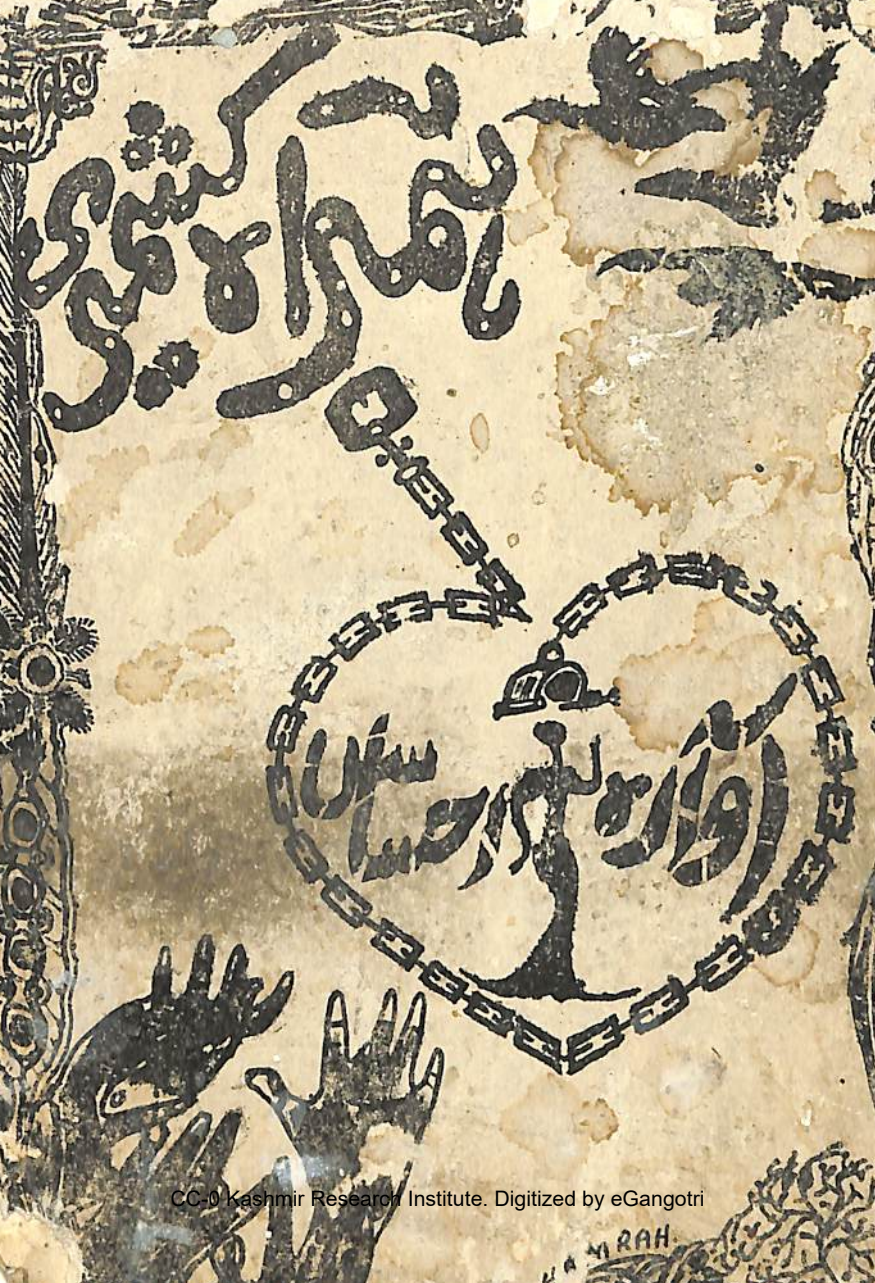 ہمراہ کشمیری
آوارہ
HAMRAH.
CC-0 Kashmir Research Institute. Digitized by eGangotri